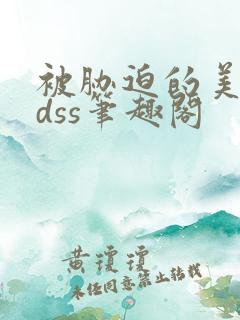 被胁迫的美
dss笔趣阁
黄琼琼
未经同意禁止转载